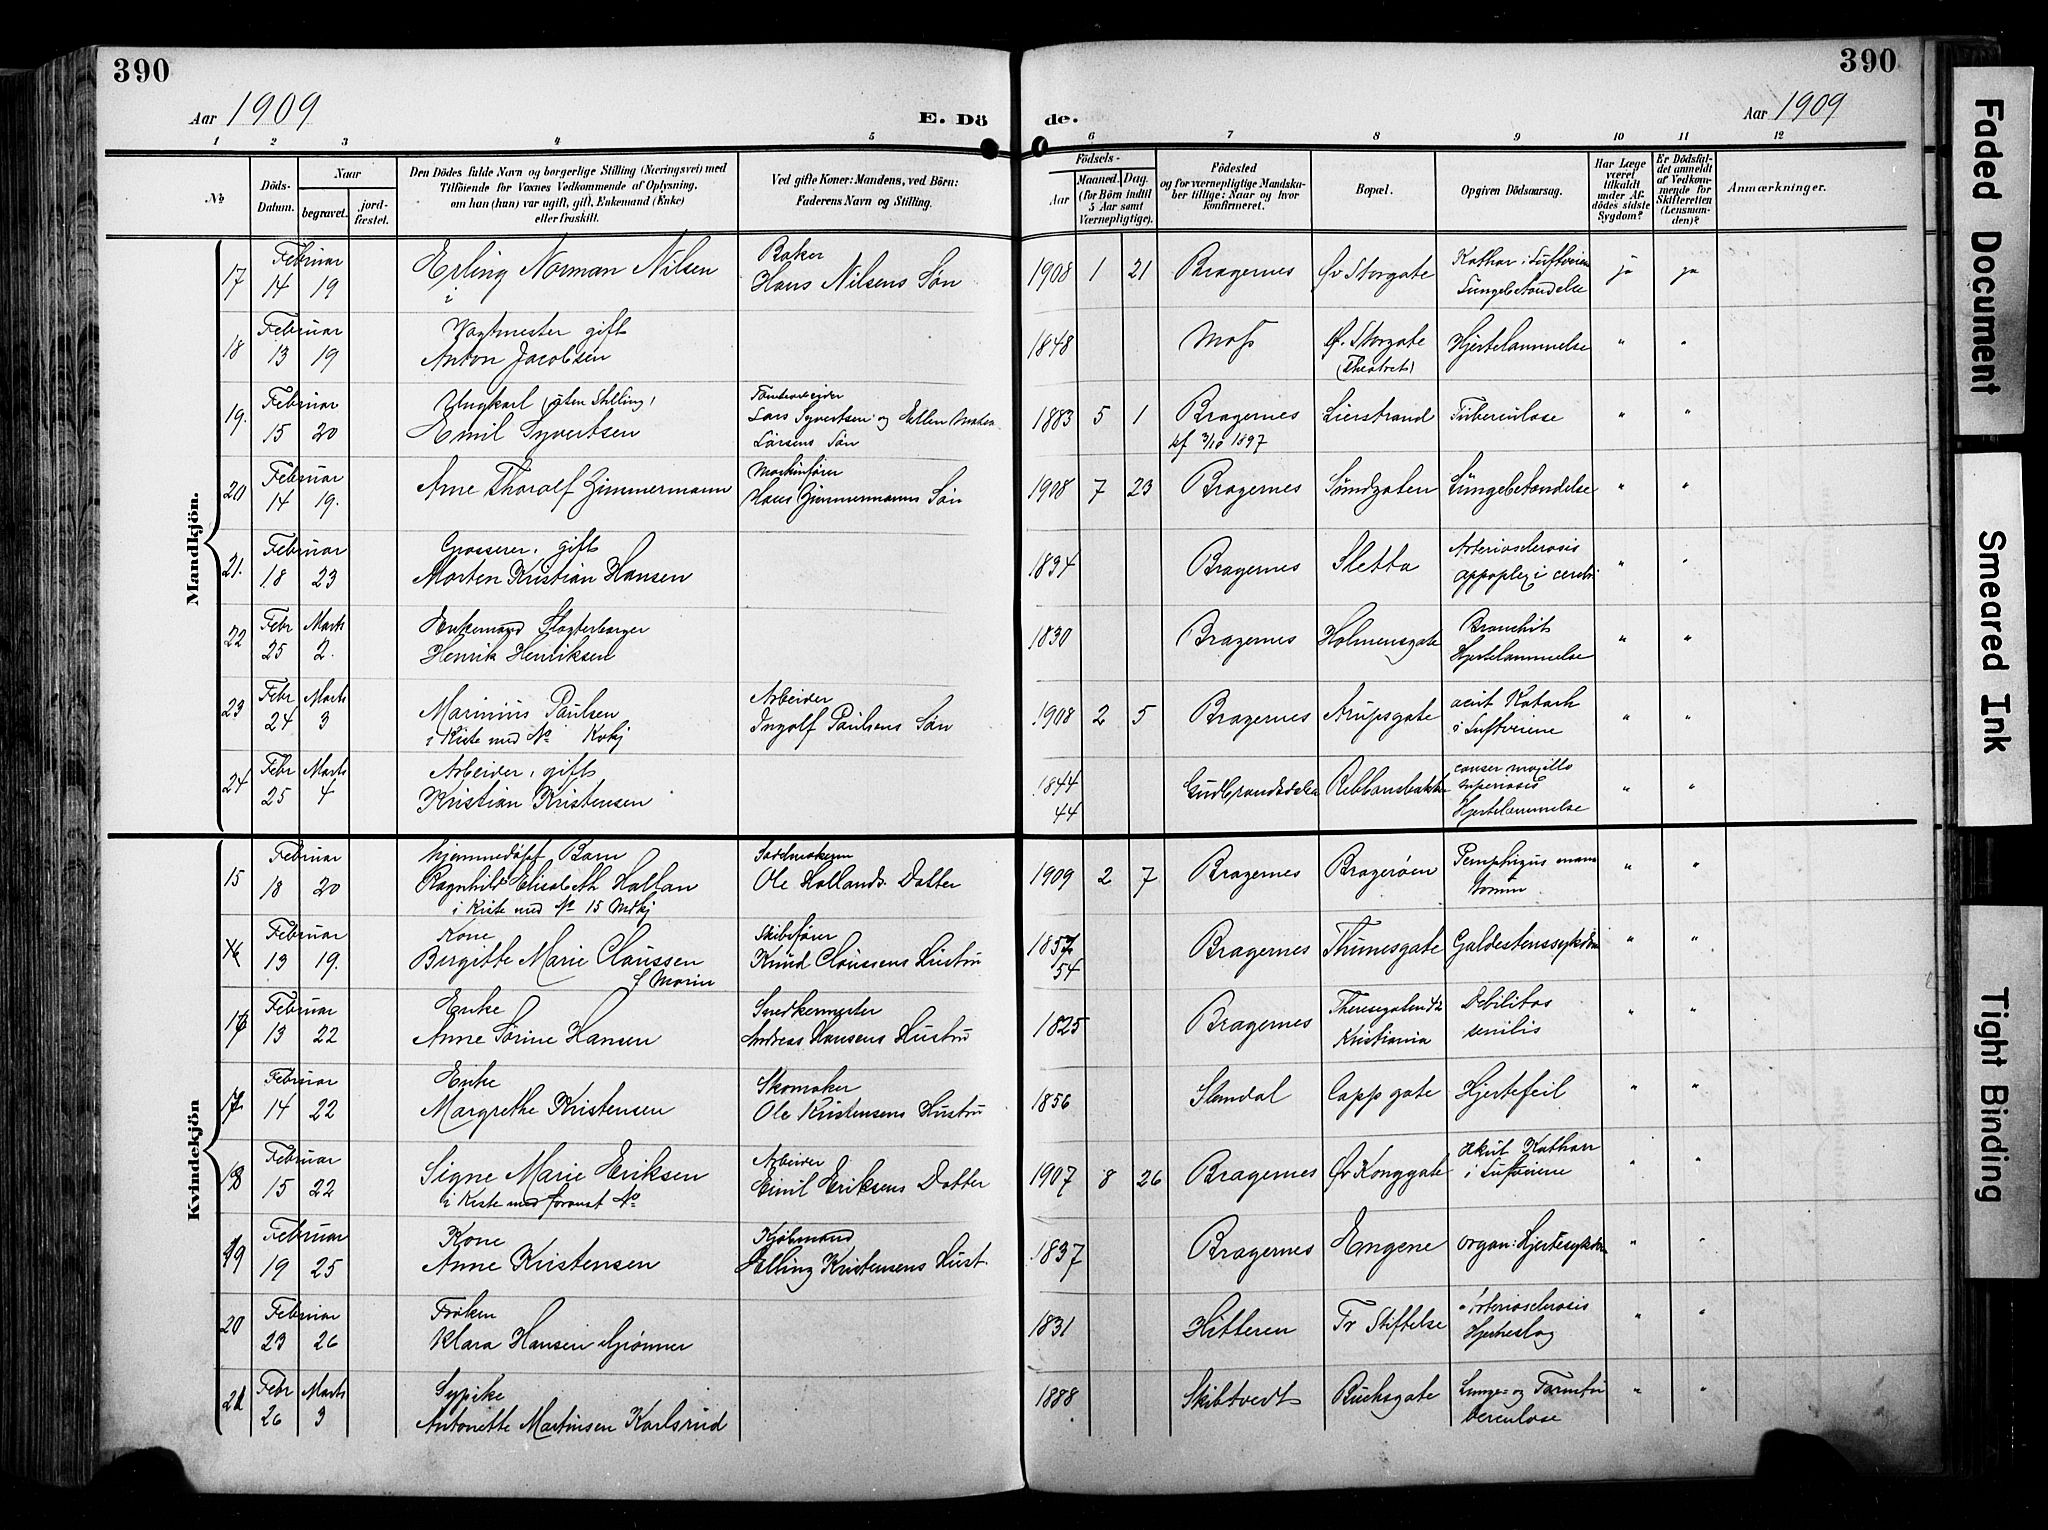 390
390
Aar 1909
E. Dö de.
Aar 1909
1 2 3 4 5 6 7 8 9 10 11 12
No
Döds-Datum.
Naar
begravet.
jord-fæstet.
Den Dödes fulde Navn og borgerlige Stilling (Næringsvei) med
Tilföiende for Voxnes Vedkommende af Oplysning,
om han (hun) var ugift, gift, Enkemand (Enke)
eller fraskilt.
Ved gifte Koner: Mandens, ved Börn:
Faderens Navn og Stilling.
Födsels-
Aar
Maaned. Dag.
(for Börn indtil
5 Aar samt
Værnepligtige).
Födested
og for værnepligtige Mandska-
ber tillige: Naar og hvor
konfirmeret.
Bopæl.
Opgiven Dödsaarsag.
Har Læge
været
tilkaldt
under Af-
dödes sidste
Sygdom?
Er Dödsfal-
det anmeldt
af Vedkom-
mende for
Skifteretten
(Lensman-
den)?
Anmærkninger.
Mandkjön.
17 Februar 14 19 Erling Norman Nilsen Baker Hans Nilsens Søn 1908 1 21 Bragernes Øv Storgate Kathar i Luftveiene Lungebetændelse ja ja
18 Februar 13 19 Vagtmester gift Anton Jacobsen 1848 Moss Ø. Storgate (Theatret) Hjertelammelse " "
19. Februar 15 20 Ungkarl (uten Stilling) Emil Syvertsen Lars Syvertsen og Ellen Larsens Søn 1883 5 1 Bragernes kf 3/10 1897 Lierstrand Tuberculose " "
20 Februar 14 19. Arne Thoralf Zimmermann Maskinfører Hans Zimmermanns Søn 1908 7 23 Bragernes Sundgaten Lungebetændelse " "
21. Februar 18 23 Grosserer, gift Morten Kristian Hansen 1834 Bragernes Sletta Arteriosclerosis appoplexi cerebri " "
22 Febr 25 Marts 2. Enkemand Slagterborger Henrik Henriksen 1830 Bragernes Holmensgate Bronchit Hjertelammelse " "
23 Febr 24 Marts 3 Marinius Paulsen i Kiste med No Kvkj Arbeider Ingolf Paulsens Søn 1908 2 5 Bragernes Arupsgate acut Katarh i Luftveiene " "
24 Febr 25 Marts 4 Arbeider, gift Kristian Kristensen 1844 44 Gudbrandsdalen Hjertelammelse " "
Kvindekjön
15 Februar 18 20 hjemmedøpt Barn Ragnhild Elisabeth Halland i Kiste med No 15 Mdkj Ole Hallands Datter 1909 2 7 Bragernes Bragerøen Pemphigus " "
16 Februar 13 19. Kone Birgitte Marie Claussen f Morin Skibsfører Knud Claussens Hustru 1857 54 Bragernes Thunesgate Galdestenssykdom " "
16 Februar 13 22 Enke Anne Sørine Hansen Snedkermester Andreas Hansens Hustru 1825 Bragernes Theresegaten 42 Kristiania Debilitas senilis " "
17 Februar 14 22 Enke Margrethe Kristensen Skomaker Ole Kristensens Hustru 1856 Slemdal Cappgate Hjertefeil " "
18 Februar 15 22 Signe Marie Eriksen i Kiste med foranst No Arbeider Emil Eriksens Datter 1907 8 26 Bragernes Øv Konggate akut Katharr i Luftveiene " "
19 Februar 19 25 Kone Anne Kristensen Kjøbmand Elling Kristensens Hust. 1837 Bragernes Engene organ: Hjertesykdom " "
20 Februar 23 26 Frøken Klara Hansen Grønner 1831 Hitteren Tr Stiftelse Arterioschlerosis Hjerteslag " "
21 Febr 26 Marts 3 Sypike Antonette Martinsen Karlsrud 1888 Skibtvedt Buchsgate Lunge- og Tarmtuberculose " "
Faded Document
Smeared Ink
Tight Binding